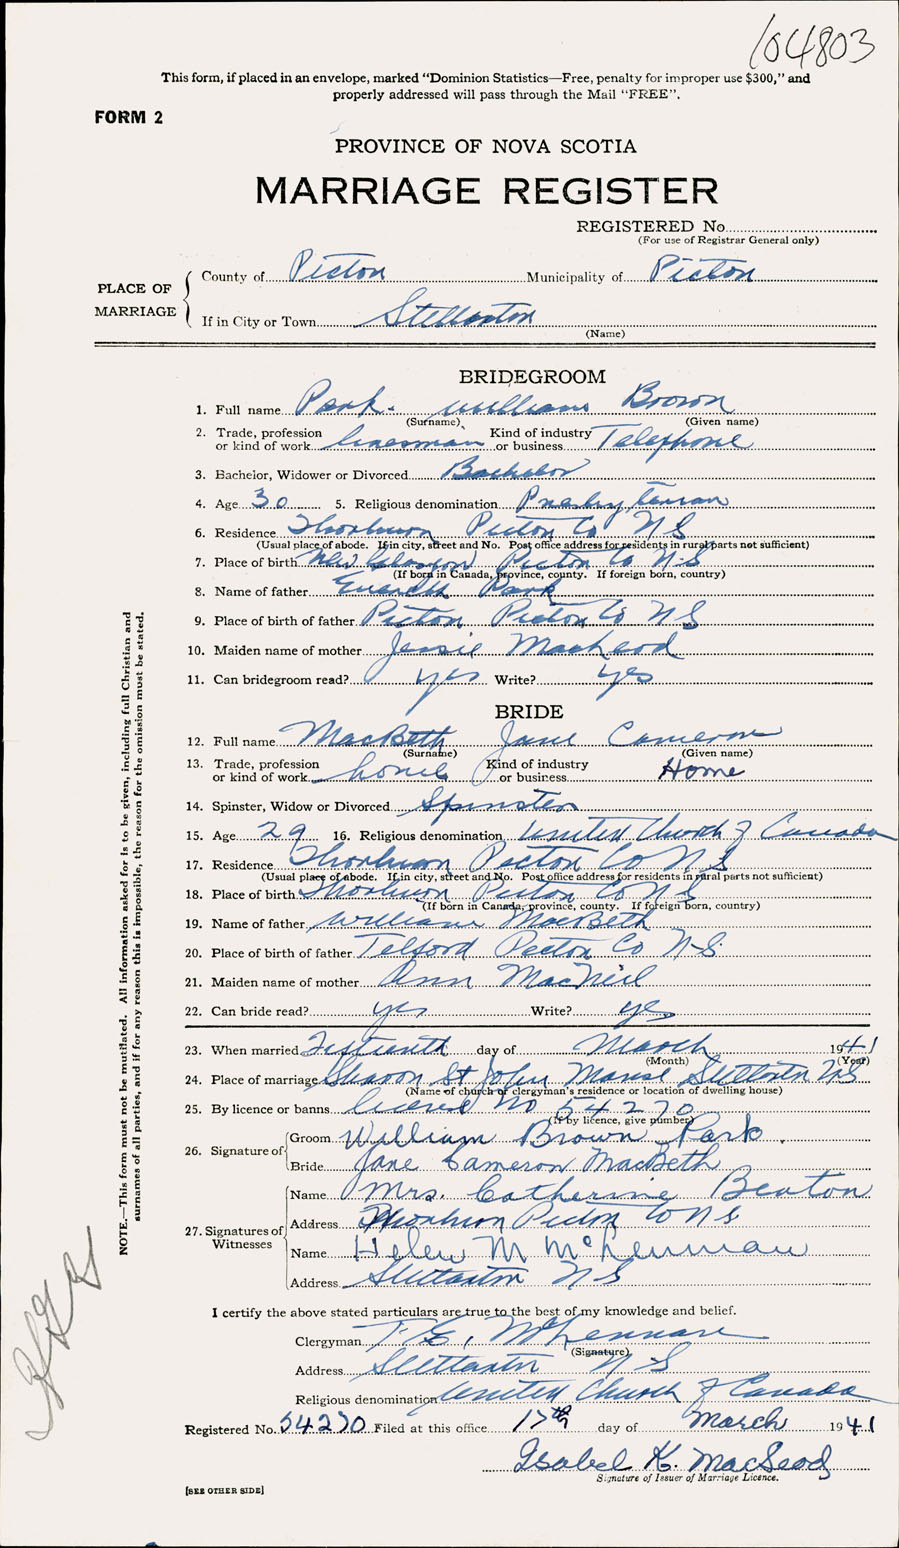 104803
This form, if placed in an envelope, marked "Dominion Statistics—Free, penalty for improper use $300," and
properly addressed will pass through the Mail "FREE".
FORM 2
PROVINCE OF NOVA SCOTIA
MARRIAGE REGISTER
REGISTERED No.
(For use of Registrar General only)
PLACE OF MARRIAGE
County of Picton Municipality of Picton
If in City or Town Stellarton
(Name)
BRIDEGROOM
1. Full name Park. William Brown
(Surname) (Given name)
2. Trade, profession or kind of work linesman Kind of industry or business Telephone
3. Bachelor, Widower or Divorced Bachelor
4. Age 30 5. Religious denomination Presbyterian
6. Residence Thorburn Picton Co N S
(Usual place of abode. If in city, street and No. Post office address for residents in rural parts not sufficient)
7. Place of birth New Glasgow Picton Co N-S
(If born in Canada, province, county. If foreign born, country)
8. Name of father Everett Park
9. Place of birth of father Picton Picton Co N S
10. Maiden name of mother Jessie MacLeod
11. Can bridegroom read? yes Write? yes
BRIDE
12. Full name MacBeth Jane Cameron
(Surname) (Given name)
13. Trade, profession or kind of work home Kind of industry or business Home
14. Spinster, Widow or Divorced Spinster
15. Age 29 16. Religious denomination United Church of Canada
17. Residence Thorburn Picton Co N S
(Usual place of abode. If in city, street and No. Post office address for residents in rural parts not sufficient)
18. Place of birth Thorburn Picton Co N S
(If born in Canada, province, county. If foreign born, country)
19. Name of father William MacBeth
20. Place of birth of father Telford Picton Co N-S
21. Maiden name of mother Ann MacNeil
22. Can bride read? yes Write? yes
23. When married day of March 1941
(Month) (Year)
24. Place of marriage Sharon St John Manse Stellarton NS
(Name of church or clergyman's residence or location of dwelling house)
25. By licence or banns licence No 54270
(If by licence, give number)
26. Signature of Groom William Brown Park.
Bride Jane Cameron MacBeth
27. Signatures of Witnesses
Name Mrs. Catherine Beaton
Address Thorburn Picton Co N S
Name Helen M McLennan
Address Stellarton N S
I certify the above stated particulars are true to the best of my knowledge and belief.
Clergyman McLennan
(Signature)
Address Stellarton N-S
Religious denomination United Church of Canada
Registered No. 54270 Filed at this office 17th day of March 1941
Isabel K. MacLeod
Signature of Issuer of Marriage Licence.
[SEE OTHER SIDE]
NOTE.—This form must not be mutilated. All information asked for is to be given, including full Christian and
surnames of all parties, and if for any reason this is impossible, the reason for the omission must be stated.